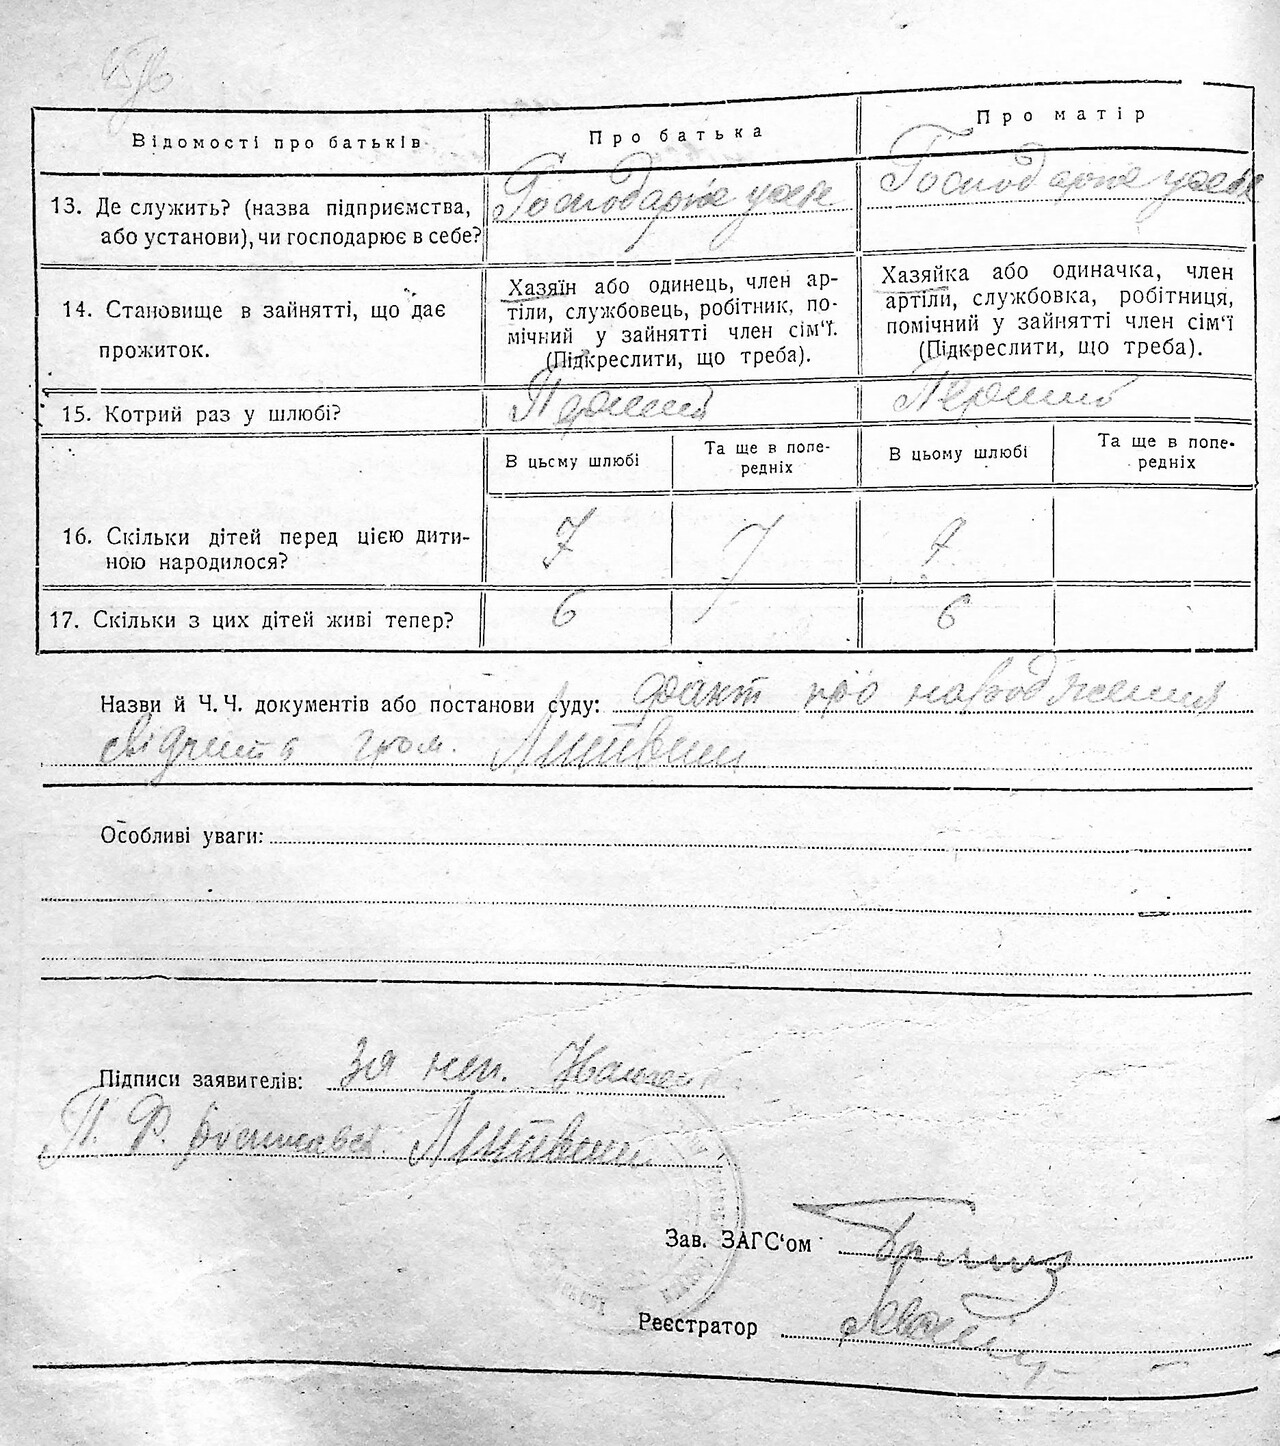 Відомості про батьків
Про батька
Про матір
13. Де служить? (назва підприємства,
або установи), чи господарює в себе?
Господарює у себе
Господарює у себе
14. Становище в зайнятті, що дає
прожиток.
Хазяїн або одинець, член ар-
тіли, службовець, робітник, по-
мічний у зайнятті член сім'ї.
(Підкреслити, що треба).
Хазяйка або одиначка, член
артіли, службовка, робітниця,
помічний у зайнятті член сім'ї
(Підкреслити, що треба).
15. Котрий раз у шлюбі?
Перший
Перший
В цьому шлюбі
Та ще в попе-
редніх
В цьому шлюбі
Та ще в попе-
редніх
16. Скільки дітей перед цією дити-
ною народилося?
7
7
17. Скільки з цих дітей живі тепер?
6
6
Назви й Ч. Ч. документів або постанови суду: факт про народження
свідчить гром. Литвин
Особливі уваги:
Підписи заявителів: За неп.
П. Ф. росписався Литвин
Зав. ЗАГС'ом
Реєстратор